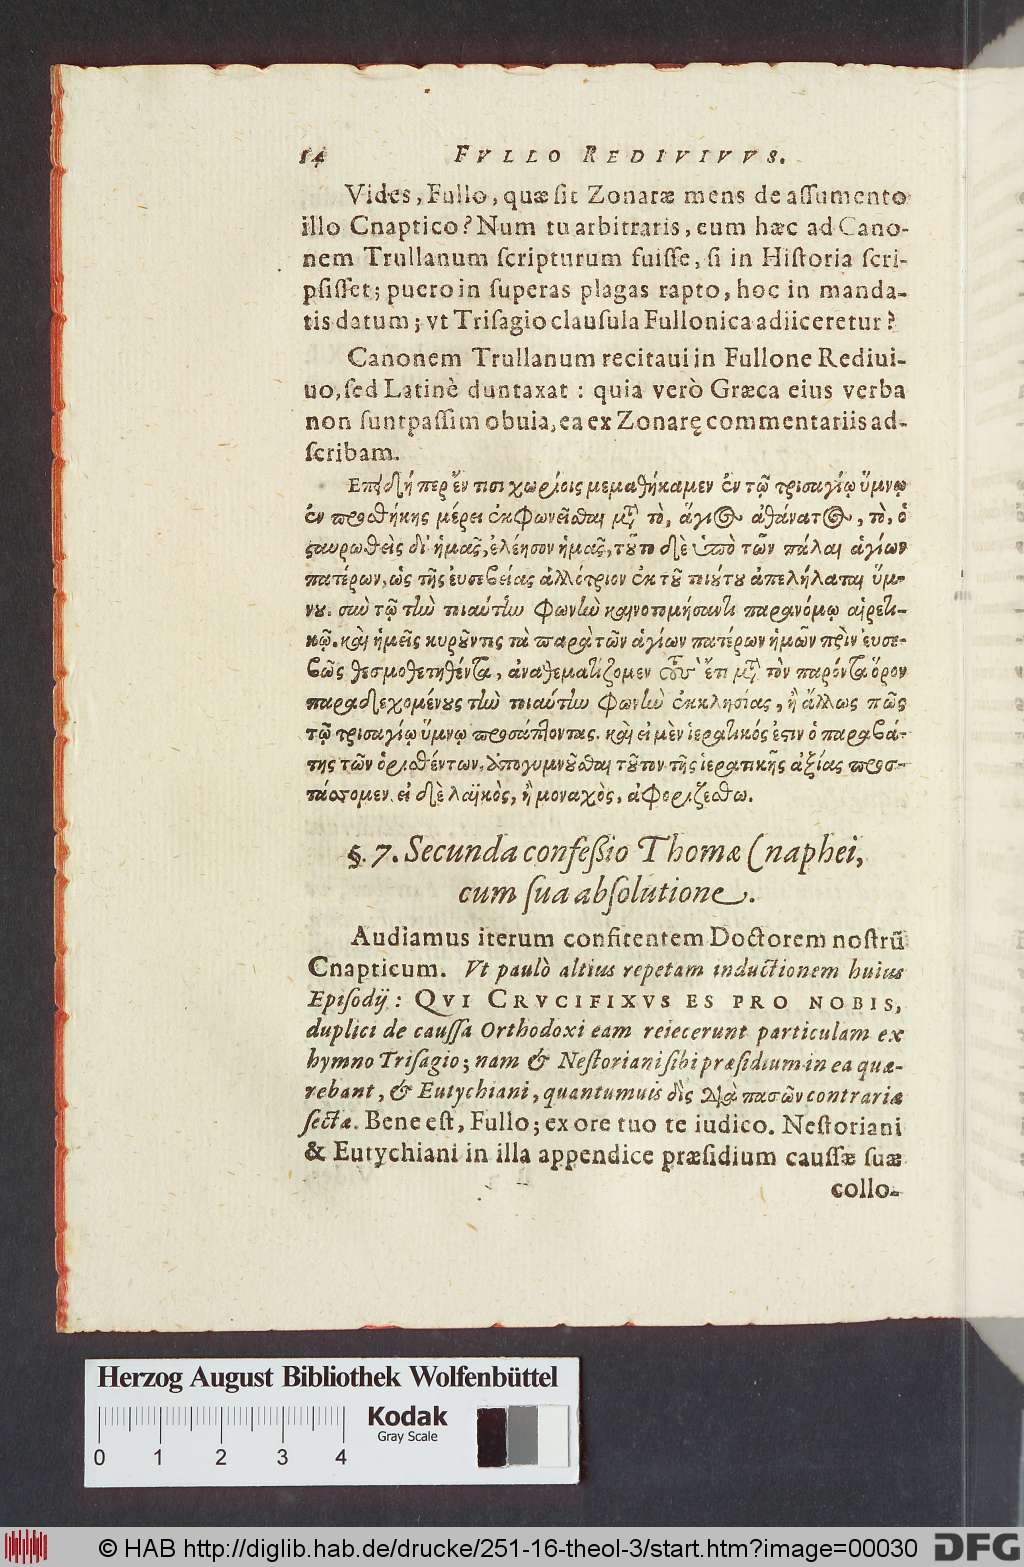 14 FVLLO REDIVIVVS.
Vides, Fullo, quæ sit Zonaræ mens de assumento
illo Cnaptico? Num tu arbitraris, eum hæc ad Cano-
nem Trullanum scripturum fuisse, si in Historia scri-
psisset; puero in superas plagas rapto, hoc in manda-
tis datum; vt Trisagio clausula Fullonica adiiceretur?
Canonem Trullanum recitaui in Fullone Rediui-
uo, sed Latinè duntaxat: quia verò Græca eius verba
non sunt passim obuia, ea ex Zonaræ commentariis ad-
scribam.
Επειδήπερ ἔν τισι χωρίοις μεμαθήκαμεν ἐν τῷ τρισαγίῳ ὕμνῳ
ἐν προσθήκης μέρει ἐκφωνεῖσθαι μετὰ τὸ, ἅγιος ἀθάνατος, τὸ, ὁ
ςαυρωθεὶς δι' ἡμᾶς, ἐλέησον ἡμᾶς, τοῦτο δὲ ὑπὸ τῶν πάλαι ἁγίων
πατέρων, ὡς τῆς ἐυσεβείας ἀλλότριον ἐκ τοῦ τοιούτου ἀπελήλαται ὕμ-
νου. σὺν τῷ τὴν τοιαύτην φωνὴν καινοτομήσαντι παρανόμῳ αἱρετι-
κῷ. καὶ ἡμεῖς κυροῦντες τὰ παρὰ τῶν ἁγίων πατέρων ἡμῶν πρὶν ἐυσε-
βῶς θεσμοθετηθέντα, ἀναθεματίζομεν τοὺς ἔτι μετὰ τὸν παρόντα ὅρον
παραδεχομένους τὴν τοιαύτην φωνὴν ἐκκλησίας, ἢ ἄλλως πῶς
τῷ τρισαγίῳ ὕμνῳ προσάπτοντας. καὶ εἰ μὲν ἱερατικός ἐστιν ὁ παραβά-
της τῶν ὁρισθέντων, ἀπογυμνοῦσθαι τοῦτον τῆς ἱερατικῆς ἀξίας προσ-
τάσσομεν. εἰ δὲ λαϊκὸς, ἢ μοναχὸς, ἀφοριζέσθω.
§. 7. Secunda confessio Thomæ Cnaphei,
cum sua absolutione.
Audiamus iterum confitentem Doctorem nostrũ
Cnapticum. Vt paulò altius repetam inductionem huius
Episodij: QVI CRVCIFIXVS ES PRO NOBIS,
duplici de caussa Orthodoxi eam reiecerunt particulam ex
hymno Trisagio; nam & Nestoriani sibi præsidium in ea quæ-
rebant, & Eutychiani, quantumuis δὶς διὰ πασῶν contrariæ
sectæ. Bene est, Fullo; ex ore tuo te iudico. Nestoriani
& Eutychiani in illa appendice præsidium caussæ suæ
collo-
Herzog August Bibliothek Wolfenbüttel
Kodak
Gray Scale
0 1 2 3 4
© HAB http://diglib.hab.de/drucke/251-16-theol-3/start.htm?image=00030 DFG